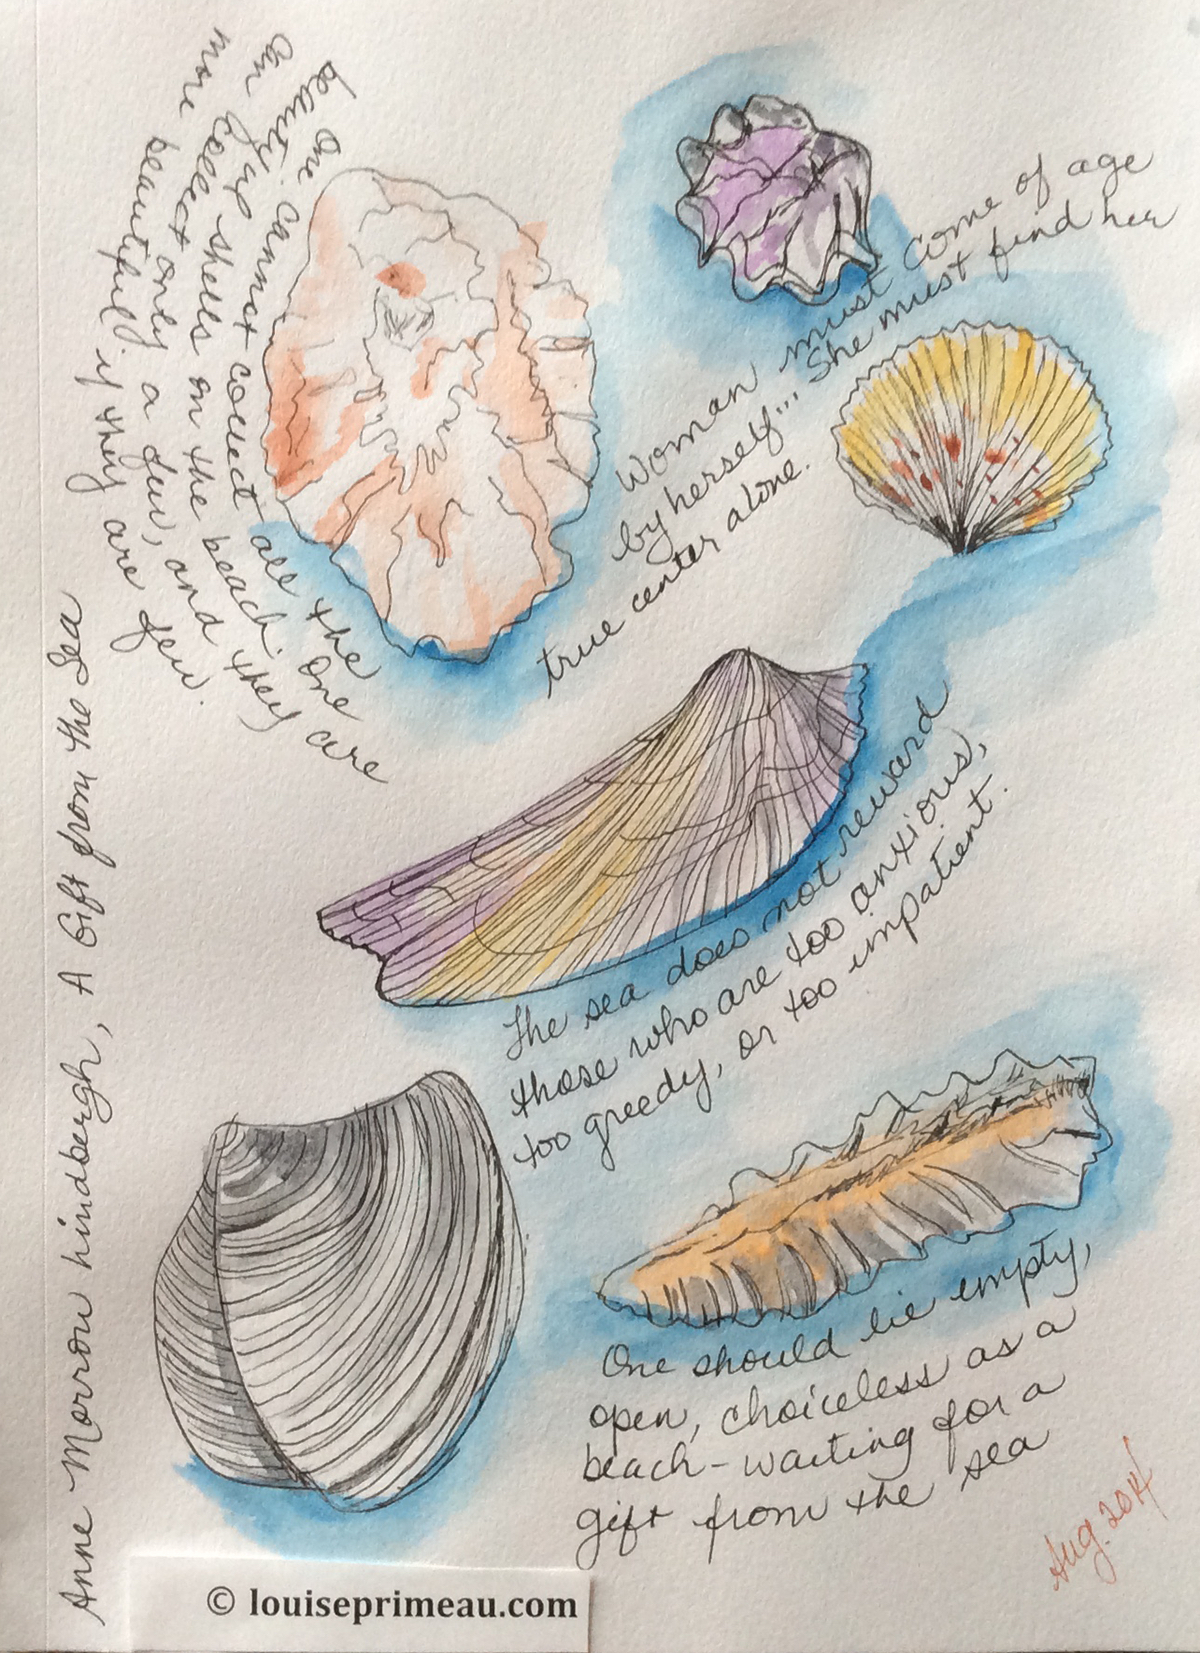 One cannot collect all the
beautiful shells on the beach. One
can collect only a few, and they are
more beautiful if they are few.
Woman must come of age
by herself... She must find her
true center alone.
The sea does not reward
those who are too anxious,
too greedy, or too impatient.
One should lie empty,
open, choiceless as a
beach - waiting for a
gift from the sea
Anne Morrow Lindbergh, A Gift from the Sea
Aug. 2014
© louiseprimeau.com